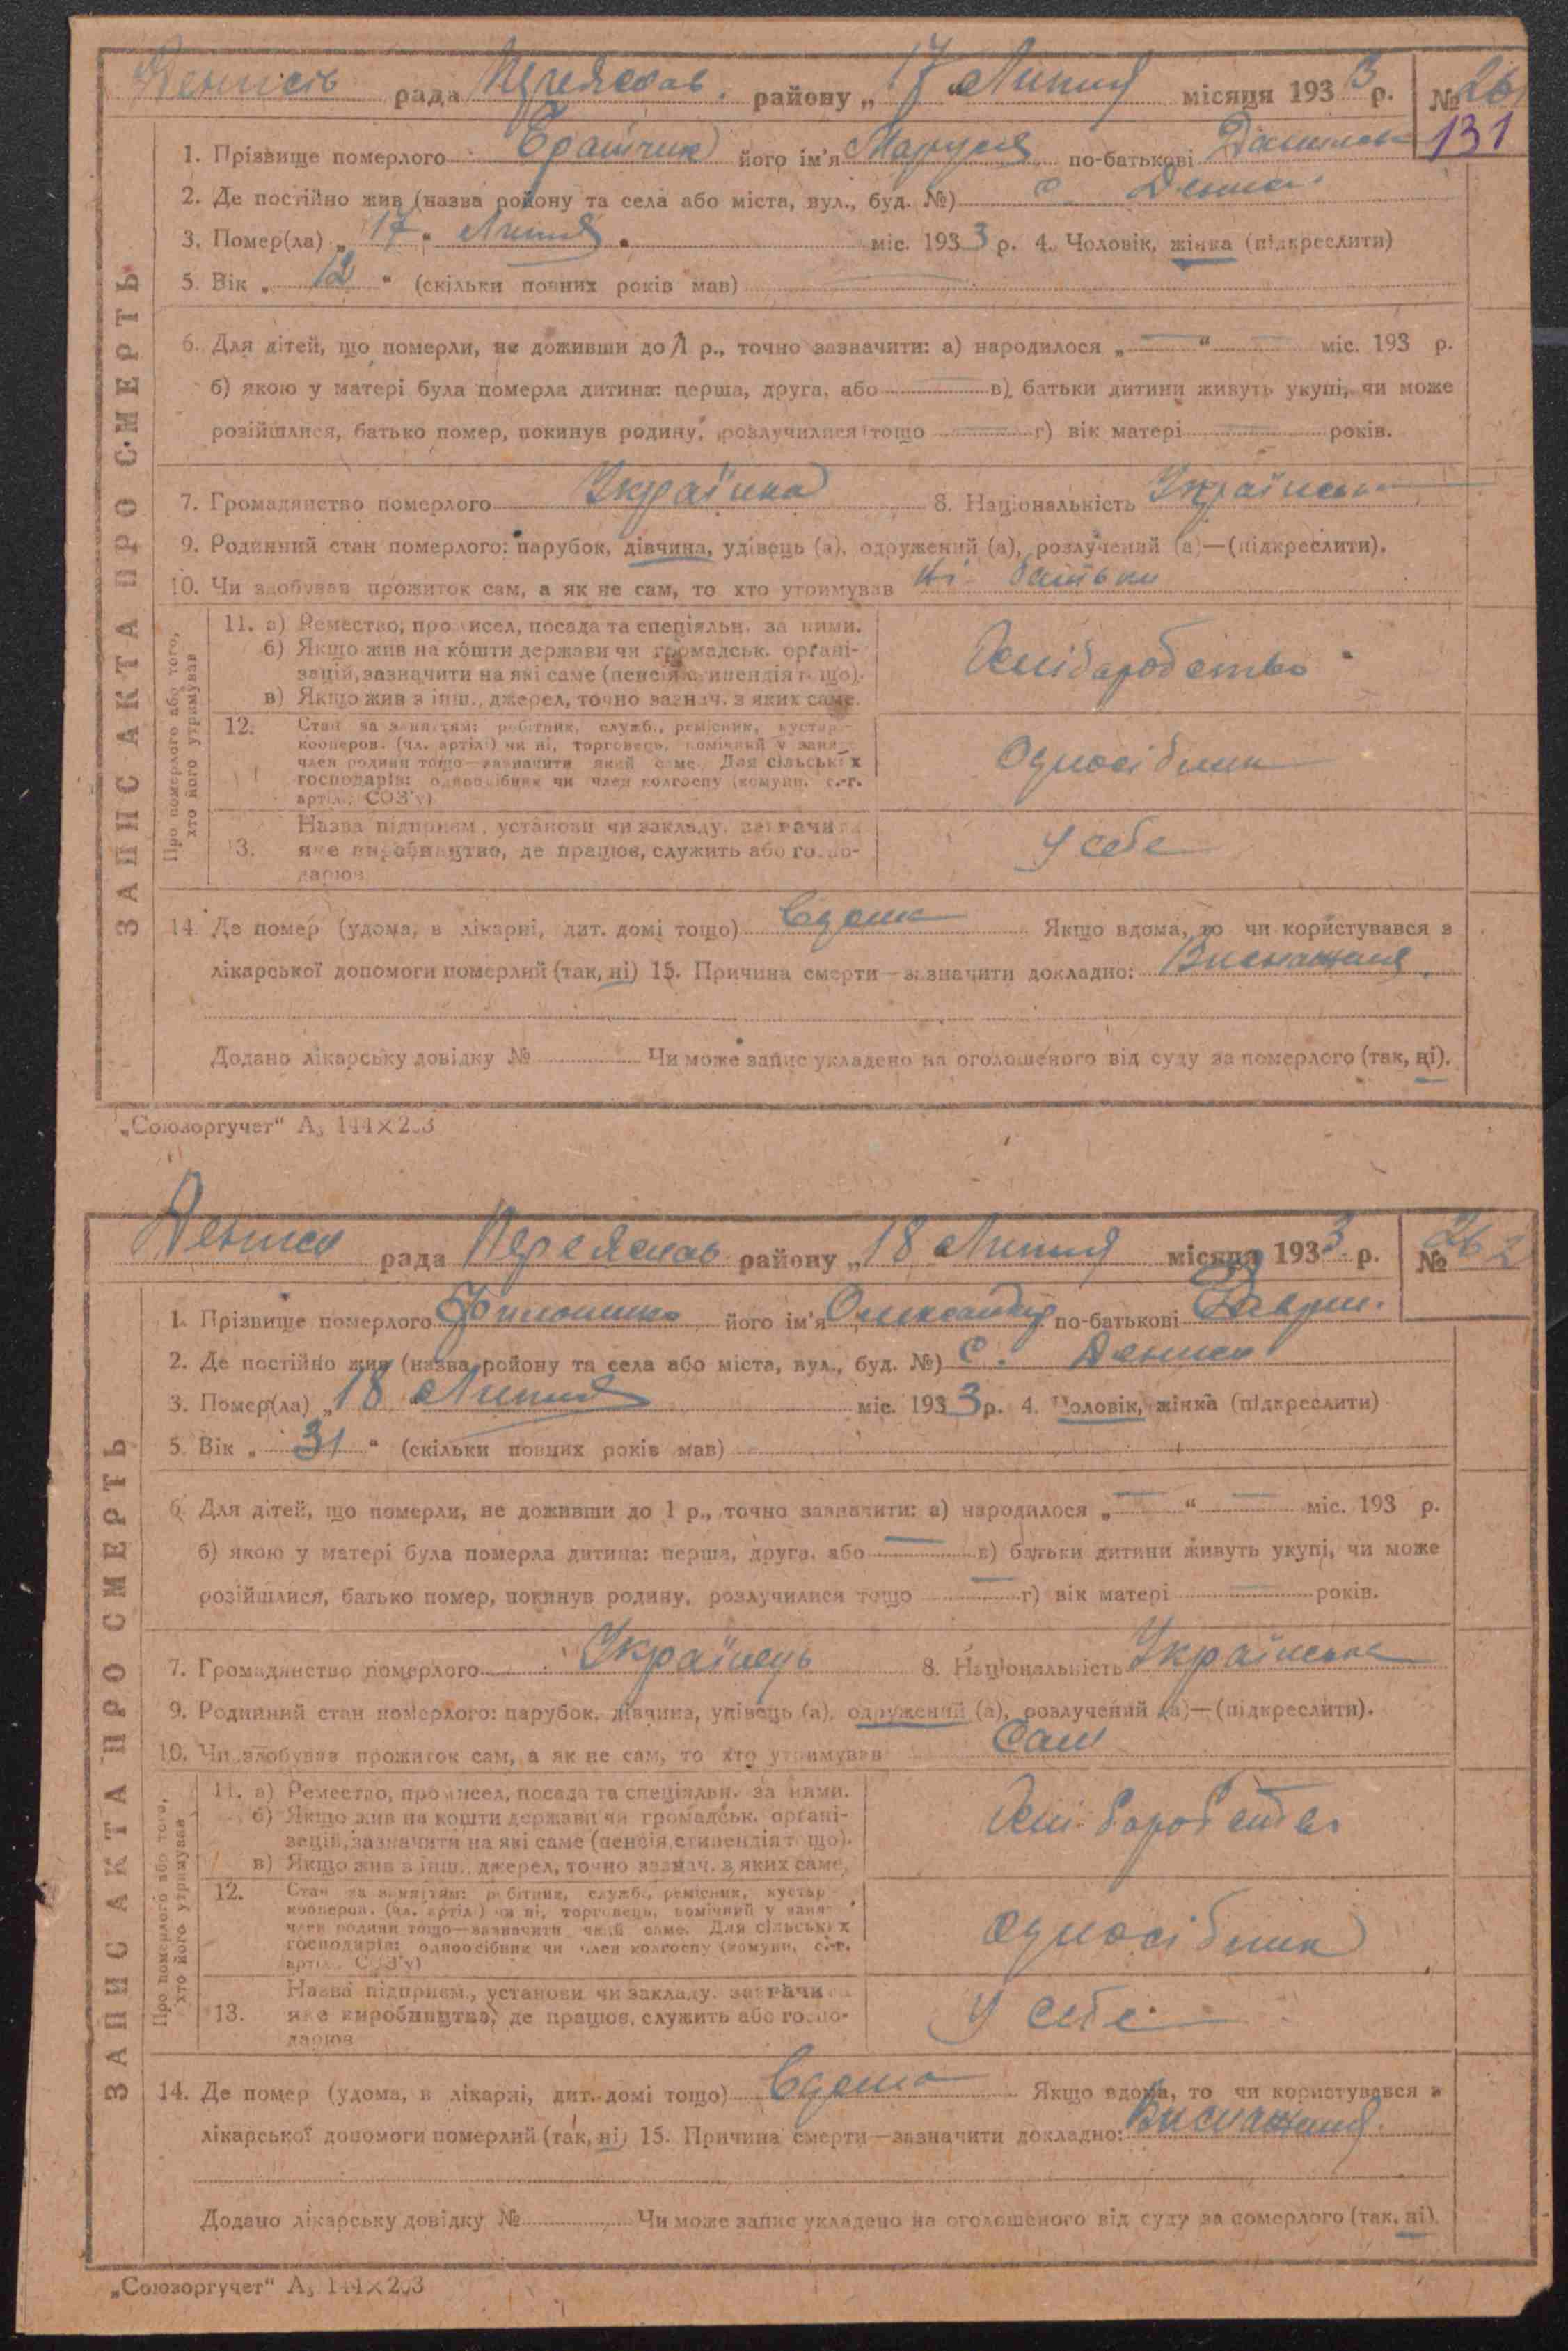 Денисів рада Переяслав. району „17" Липня місяця 1933 р. № 261
131
1. Прізвище померлого Братчик його ім'я Маруся по-батькові
2. Де постійно жив (назва району та села або міста, вул., буд. №) с. Дениси
3. Помер(ла) „17" Липня міс. 1933 р. 4. Чоловік, жінка (підкреслити)
5. Вік „12" (скільки повних років мав)
6. Для дітей, що померли, не доживши до 1 р., точно зазначити: а) народилося „ — " — міс. 193 р.
б) якою у матері була померла дитина: перша, друга, або — в) батьки дитини живуть укупі, чи може
розійшлися, батько помер, покинув родину, розлучилися тощо — г) вік матері — років.
7. Громадянство померлого Українка 8. Національність Українська
9. Родинний стан померлого: парубок, дівчина, удівець (а), одружений (а), розлучений (а)—(підкреслити).
10. Чи здобував прожиток сам, а як не сам, то хто утримував Ні батьки
ЗАПИС АКТА ПРО СМЕРТЬ
Про померлого або того, хто його утримував
11. а) Ремество, промисел, посада та спеціяльн. за ними.
б) Якщо жив на кошти держави чи громадськ. органі-
зацій, зазначити на які саме (пенсія, стипендія тощо).
в) Якщо жив з інш. джерел, точно зазнач. з яких саме.
Хліборобство
12. Стан за заняттям: робітник, служб., ремісник, кустар
кооперов. (чл. артілі) чи ні, торговець, помічний у занят.
член родини тощо—зазначити який саме. Для сільських
господарів: одноосібник чи член колгоспу (комуни, с.-г.
артілі, СОЗ'у)
Односібник
13. Назва підприєм., установи чи закладу, зазначити
яке виробництво, де працює, служить або госпо-
дарює
У себе
14. Де помер (удома, в лікарні, дит. домі тощо) Вдома Якщо вдома, то чи користувався з
лікарської допомоги померлий (так, ні) 15. Причина смерти—зазначити докладно: Виснаження
Додано лікарську довідку № Чи може запис укладено на оголошеного від суду за померлого (так, ні).
„Союзоргучет" А₅ 144×203
Дениси рада Переяслав району „18 Липня місяця 1933 р. № 262
1. Прізвище померлого його ім'я Олександр по-батькові Гаврил.
2. Де постійно жив (назва району та села або міста, вул., буд. №) с. Дениси
3. Помер(ла) „18 Липня міс. 1933 р. 4. Чоловік, жінка (підкреслити)
5. Вік „31" (скільки повних років мав)
6. Для дітей, що померли, не доживши до 1 р., точно зазначити: а) народилося „ — " — міс. 193 р.
б) якою у матері була померла дитина: перша, друга, або — в) батьки дитини живуть укупі, чи може
розійшлися, батько помер, покинув родину, розлучилися тощо — г) вік матері — років.
7. Громадянство померлого Українець 8. Національність Українська
9. Родинний стан померлого: парубок, дівчина, удівець (а), одружений (а), розлучений (а)—(підкреслити).
10. Чи здобував прожиток сам, а як не сам, то хто утримував Сам
ЗАПИС АКТА ПРО СМЕРТЬ
Про померлого або того, хто його утримував
11. а) Ремество, промисел, посада та спеціяльн. за ними.
б) Якщо жив на кошти держави чи громадськ. органі-
зацій, зазначити на які саме (пенсія, стипендія тощо).
в) Якщо жив з інш. джерел, точно зазнач. з яких саме.
Хліборобство
12. Стан за заняттям: робітник, служб., ремісник, кустар
кооперов. (чл. артілі) чи ні, торговець, помічний у занят.
член родини тощо—зазначити який саме. Для сільських
господарів: одноосібник чи член колгоспу (комуни, с.-г.
артілі, СОЗ'у)
Односібник
13. Назва підприєм., установи чи закладу, зазначити
яке виробництво, де працює, служить або госпо-
дарює
У себе
14. Де помер (удома, в лікарні, дит. домі тощо) Вдома Якщо вдома, то чи користувався з
лікарської допомоги померлий (так, ні) 15. Причина смерти—зазначити докладно: Виснаження.
Додано лікарську довідку № Чи може запис укладено на оголошеного від суду за померлого (так, ні).
„Союзоргучет" А₅ 144×203